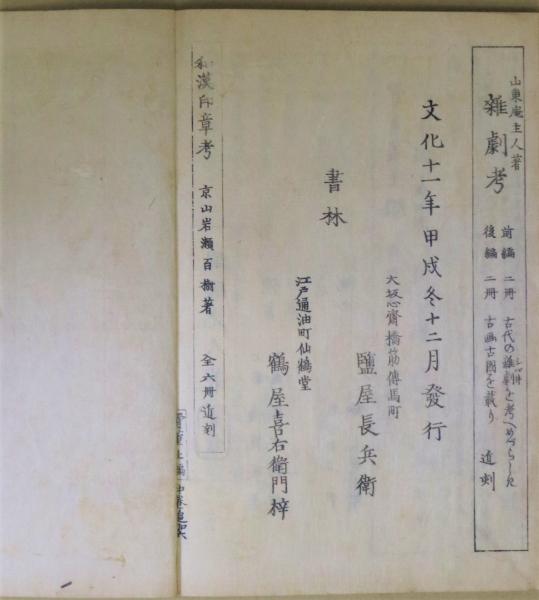 山東庵主人著
雜劇考
前編 二冊 古代の雜劇を考へめづらしき
後編 二冊 古画古図を載す 近刻
文化十一年甲戌冬十二月發行
大坂心齋橋筋傳馬町
鹽屋長兵衛
書林
江戸通油町仙鶴堂
鶴屋喜右衛門梓
和漢印章考 京山岩瀬百樹著 全六冊 近刻